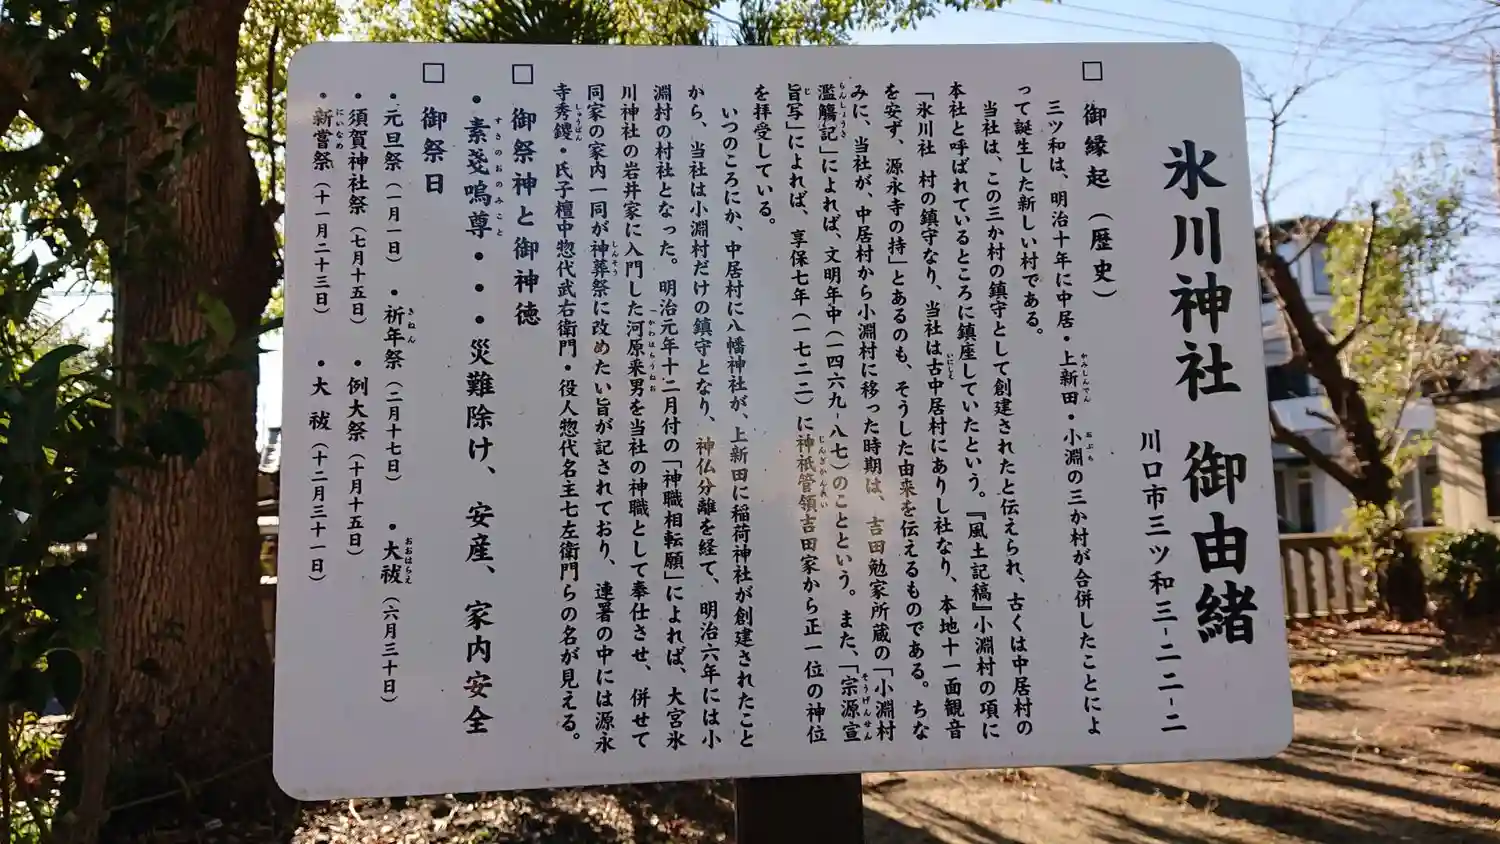 氷川神社 御由緒
川口市三ツ和三-二二-二
□ 御縁起(歴史)
三ツ和は、明治十年に中居・上新田・小淵の三か村が合併したことによ
って誕生した新しい村である。
当社は、この三か村の鎮守として創建されたと伝えられ、古くは中居村の
本社と呼ばれているところに鎮座していたという。『風土記稿』小淵村の項に
「氷川社 村の鎮守なり、当社は古中居村にありし社なり、本地十一面観音
を安ず、源永寺の持」とあるのも、そうした由来を伝えるものである。ちな
みに、当社が、中居村から小淵村に移った時期は、吉田勉家所蔵の「小淵村
濫觴記」によれば、文明年中(一四六九-八七)のことという。また、「宗源宣
旨写」によれば、享保七年(一七二二)に神祇管領吉田家から正一位の神位
を拝受している。
いつのころにか、中居村に八幡神社が、上新田に稲荷神社が創建されたこと
から、当社は小淵村だけの鎮守となり、神仏分離を経て、明治六年には小
淵村の村社となった。明治元年十二月付の「神職相転願」によれば、大宮氷
川神社の岩井家に入門した河原釆男を当社の神職として奉仕させ、併せて
同家の家内一同が神葬祭に改めたい旨が記されており、連署の中には源永
寺秀鑁・氏子檀中惣代武右衛門・役人惣代名主七左衛門らの名が見える。
□ 御祭神と御神徳
・素戔嗚尊・・・災難除け、安産、家内安全
□ 御祭日
・元旦祭(一月一日) ・祈年祭(二月十七日) ・大祓(六月三十日)
・須賀神社祭(七月十五日) ・例大祭(十月十五日)
・新嘗祭(十一月二十三日) ・大祓(十二月三十一日)